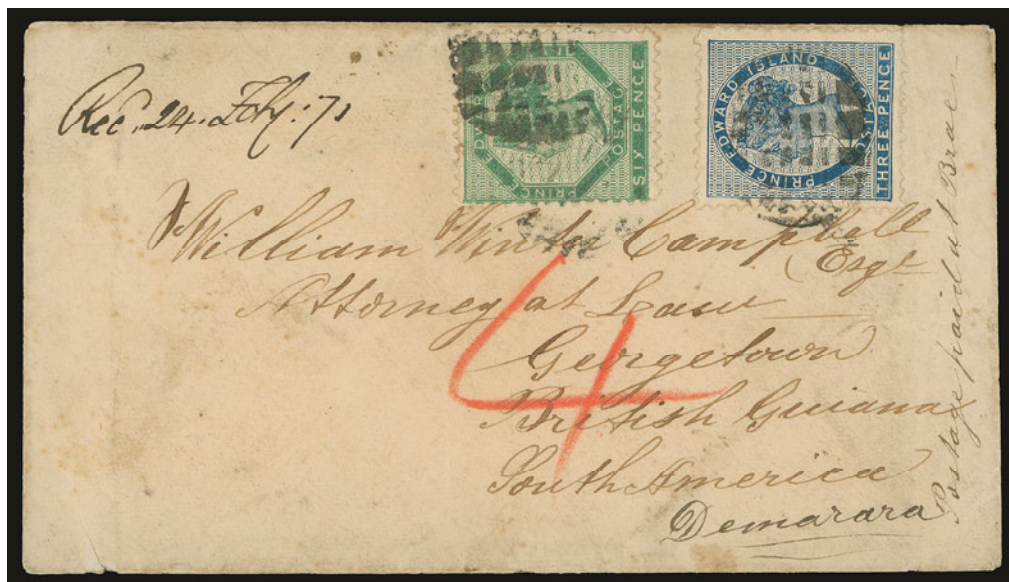 Rec. 24. Feby: 71
PRINCE EDWARD ISLAND POSTAGE
SIX PENCE
PRINCE EDWARD ISLAND POSTAGE
THREE PENCE
William Winter Campbell
Esqr
Attorney at Law
Georgetown
British Guiana
South America
Demarara
4
Postage paid at Brae